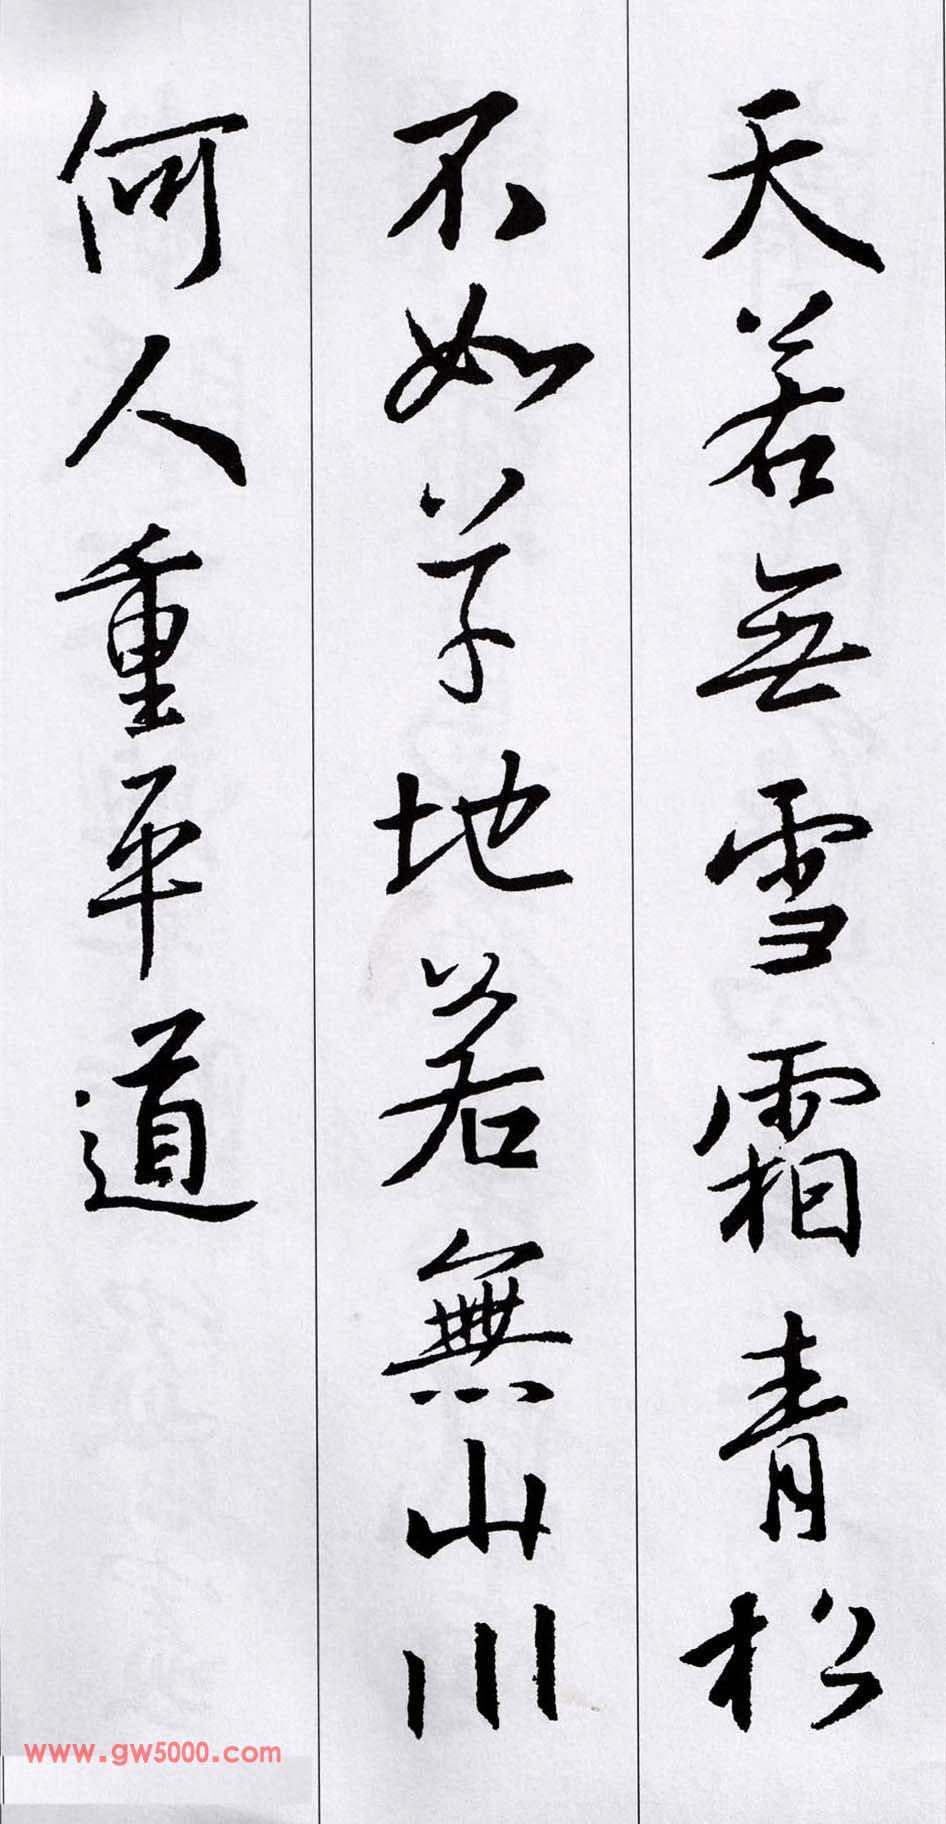 天若無雪霜青松
不如草地若無山川
何人重平道
www.gw5000.com